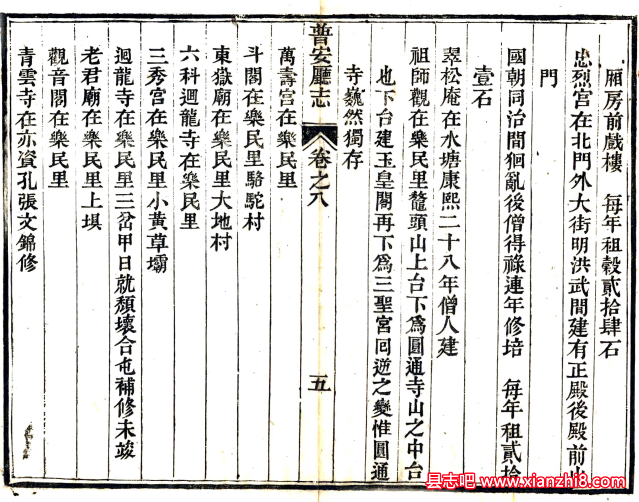 廂房前戲樓　每年租穀貳拾肆石
忠烈宮在北門外大街明洪武間建有正殿後殿前山
門
國朝同治間狪亂後僧得祿連年修培　每年租貳拾
壹石
翠松庵在水塘康熙二十八年僧人建
祖師觀在樂民里鼇頭山上台下爲圓通寺山之中台
也下台建玉皇閣再下爲三聖宮同逆之變惟圓通
寺巍然獨存
萬壽宮在樂民里
普安廳志
卷之八
五
斗閣在樂民里駱駝村
東嶽廟在樂民里大地村
六科迴龍寺在樂民里
三秀宮在樂民里小黃草壩
迴龍寺在樂民里三岔甲日就頹壞合屯補修未竣
老君廟在樂民里上埧
觀音閣在樂民里
青雲寺在亦資孔張文錦修
县志吧 www.xianzhi8.com